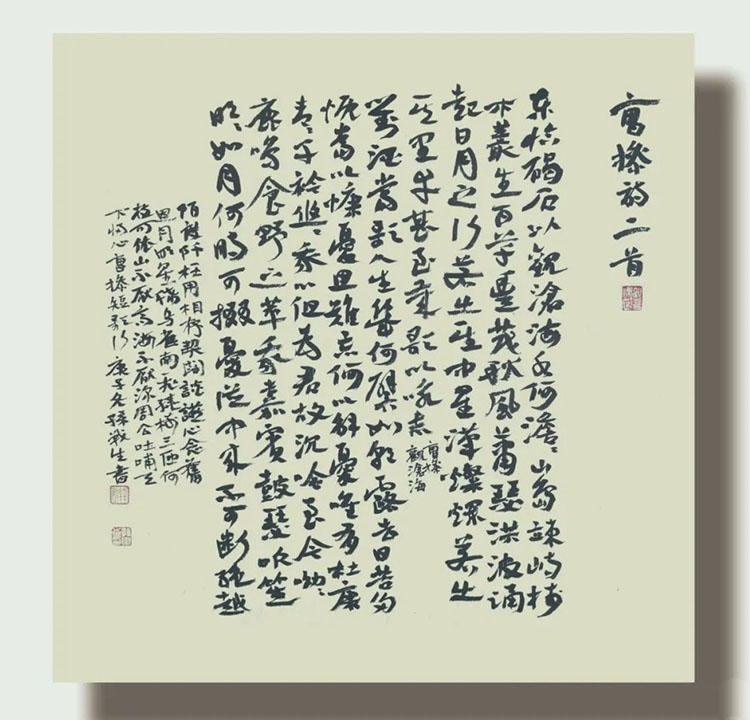 曹操詩二首
东临碣石以觀滄海水何澹澹山島竦峙樹
木叢生百草豐茂秋風蕭瑟洪波涌
起日月之行若出其中星漢燦爛若出
其里幸甚至哉歌以詠志
曹操
觀滄海
對酒當歌人生幾何譬如朝露去日苦多
慨當以慷憂思難忘何以解憂唯有杜康
青青子衿悠悠我心但为君故沉吟至今呦呦
鹿鳴食野之苹我嘉賓鼓瑟吹笙
明明如月何時可掇憂從中來不可斷絕越
陌度阡枉用相存契闊談讌心念舊
恩月明星稀烏鵲南飛繞樹三匝何
枝可依山不厭高海不厭深周公吐哺天
下歸心曹操短歌行庚子冬孫戰生書